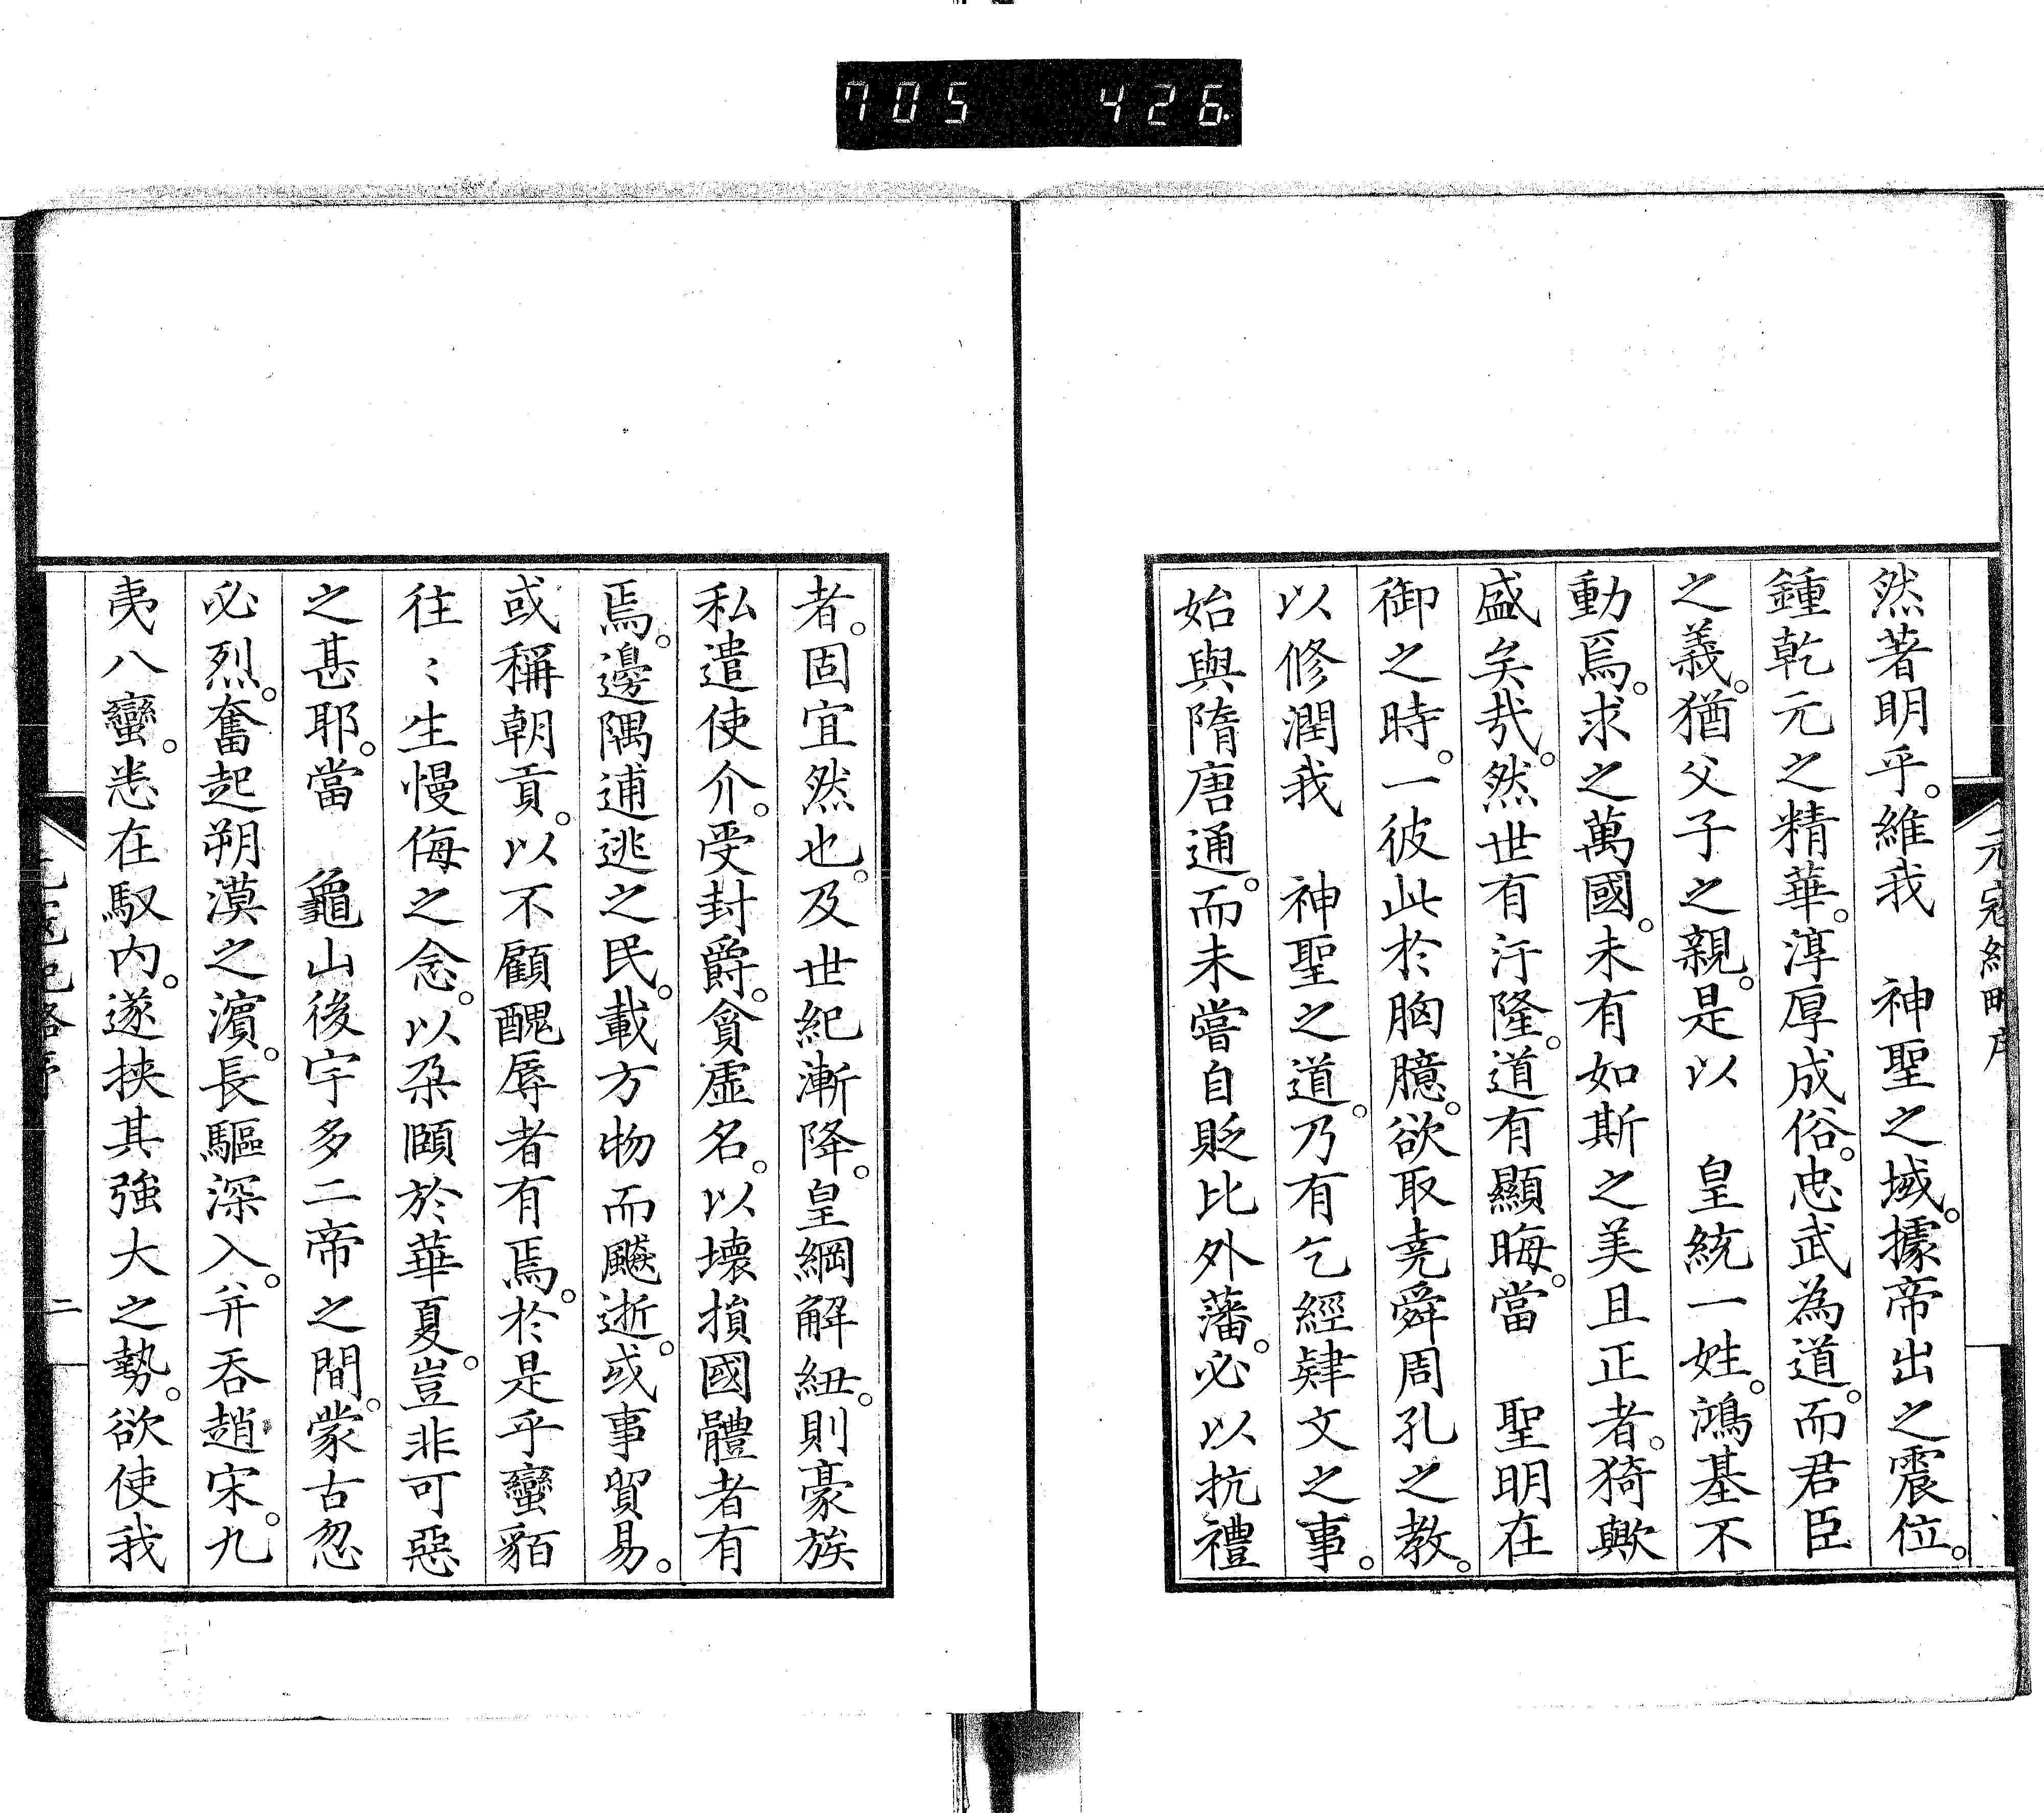 705 426
元寇紀略序
然著明乎。維我　神聖之域。據帝出之震位。
鍾乾元之精華。淳厚成俗。忠武為道。而君臣
之義。猶父子之親。是以　皇統一姓。鴻基不
動焉。求之萬國。未有如斯之美且正者。猗歟
盛矣哉。然世有汙隆。道有顯晦。當　聖明在
御之時。一彼此於胸臆。欲取堯舜周孔之教。
以修潤我　神聖之道。乃有乞經肄文之事。
始與隋唐通。而未嘗自貶比外藩。必以抗禮
者。固宜然也。及世紀漸降。皇綱解紐。則豪族
私遣使介。受封爵。貪虛名。以壞損國體者有
焉。邊隅逋逃之民。載方物而颺逝。或事貿易。
或稱朝貢。以不顧醜辱者有焉。於是乎蠻貊
往〻生慢侮之念。以朶頤於華夏。豈非可惡
之甚耶。當　龜山後宇多二帝之間。蒙古忽
必烈。奮起朔漠之濱。長驅深入。并吞趙宋。九
夷八蠻。悉在馭內。遂挾其強大之勢。欲使我
二